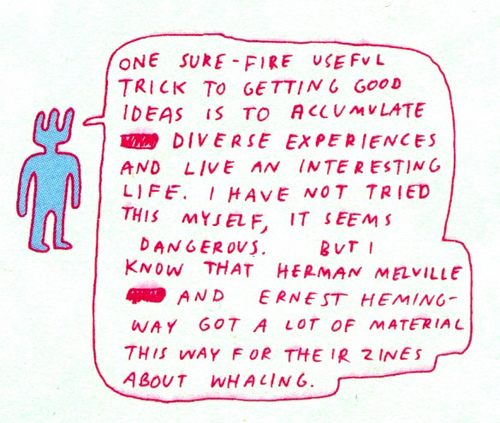 ONE SURE-FIRE USEFUL
TRICK TO GETTING GOOD
IDEAS IS TO ACCUMULATE
DIVERSE EXPERIENCES
AND LIVE AN INTERESTING
LIFE. I HAVE NOT TRIED
THIS MYSELF, IT SEEMS
DANGEROUS. BUT I
KNOW THAT HERMAN MELVILLE
AND ERNEST HEMING-
WAY GOT A LOT OF MATERIAL
THIS WAY FOR THEIR ZINES
ABOUT WHALING.